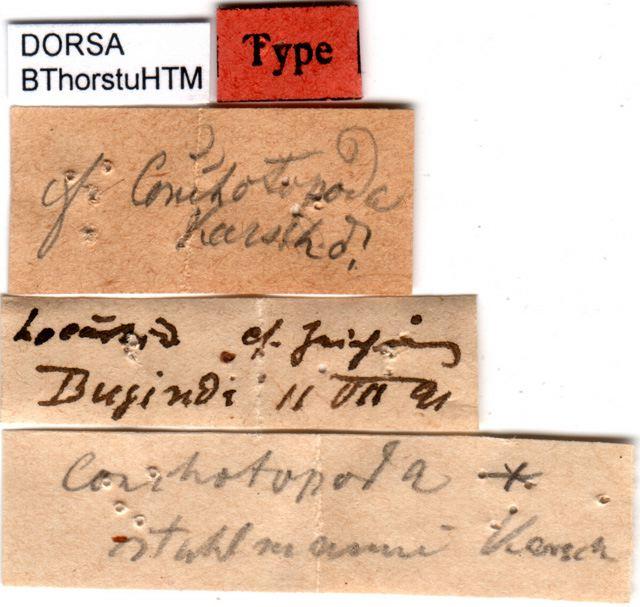 DORSA
BThorstuHTM
Type
cf. Conchotopoda
Karsch
Locustid cf.
Bugindi 11 VII 91
Conchotopoda *
stuhlmanni Karsch